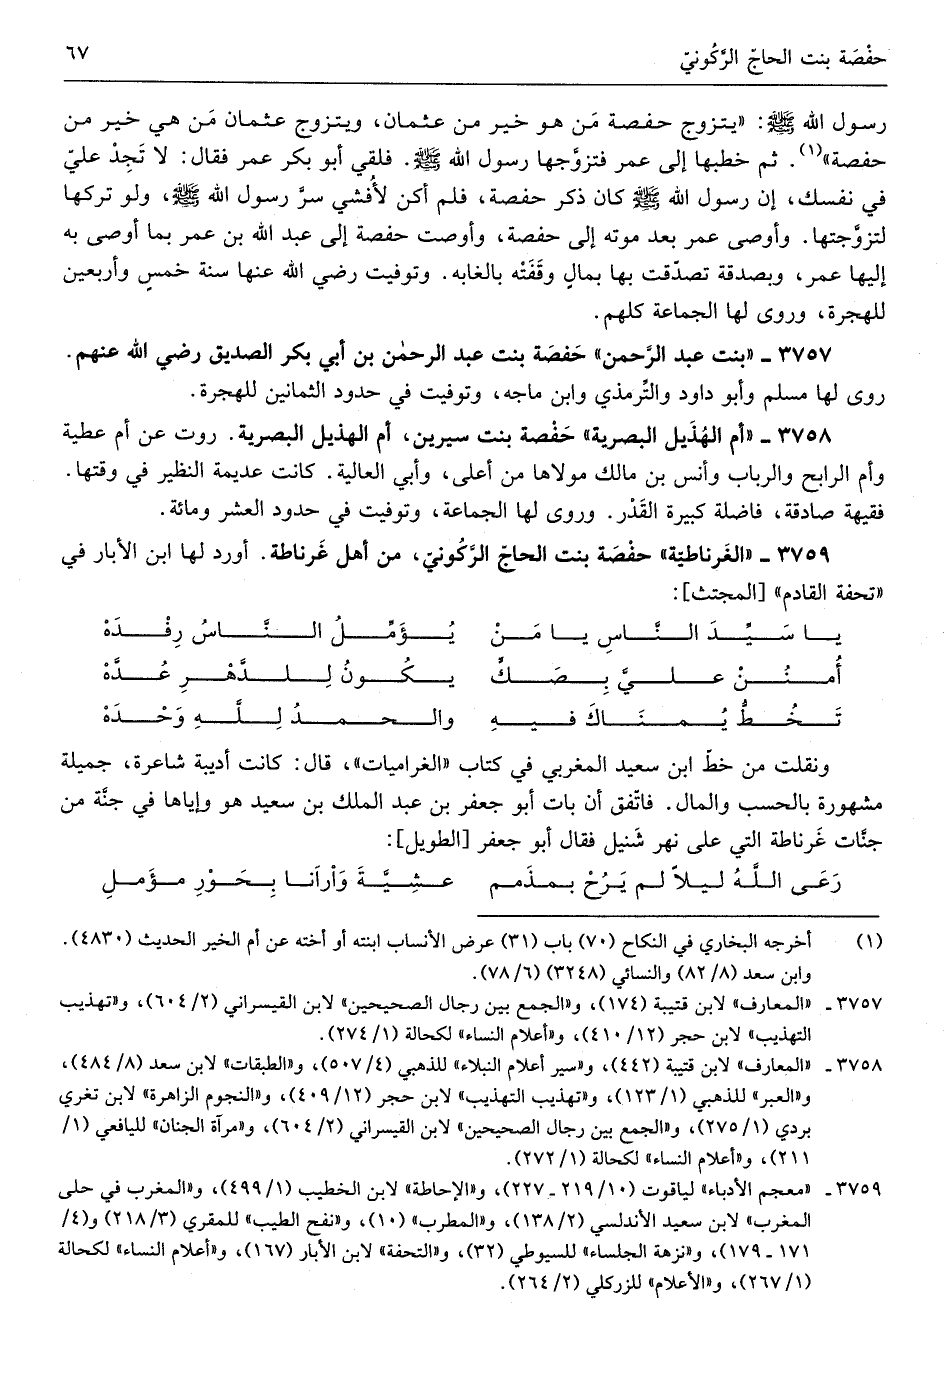 حفْصَة بنت الحاجّ الرَّكُونيّ ٦٧
رسول الله ﷺ: «يتزوج حفصة مَن هو خير من عثمان، ويتزوج عثمان مَن هي خير من
حفصة»(١). ثم خطبها إلى عمر فتزوَّجها رسول الله ﷺ. فلقي أبو بكر عمر فقال: لا تَجِدْ عليّ
في نفسك، إن رسول الله ﷺ كان ذكر حفصة، فلم أكن لأُفشي سرَّ رسول الله ﷺ، ولو تركها
لتزوَّجتها. وأوصى عمر بعد موته إلى حفصة، وأوصت حفصة إلى عبد الله بن عمر بما أوصى به
إليها عمر، وبصدقة تصدّقت بها بمالٍ وقَفَتْه بالغابه. وتوفيت رضي الله عنها سنة خمسٍ وأربعين
للهجرة، وروى لها الجماعة كلهم.
٣٧٥٧ ـ «بنت عبد الرَّحمن» حَفصَة بنت عبد الرحمٰن بن أبي بكر الصديق رضي الله عنهم.
روى لها مسلم وأبو داود والتِّرمذي وابن ماجه، وتوفيت في حدود الثمانين للهجرة.
٣٧٥٨ ـ «أم الهُذَيل البصرية» حَفْصة بنت سيرين، أم الهذيل البصرية. روت عن أم عطية
وأم الرابح والرباب وأنس بن مالك مولاها من أعلى، وأبي العالية. كانت عديمة النظير في وقتها.
فقيهة صادقة، فاضلة كبيرة القَدْر. وروى لها الجماعة، وتوفيت في حدود العشر ومائة.
٣٧٥٩ ـ «الغَرناطيّة» حفْصَة بنت الحاجّ الرَّكُونيّ، من أهل غَرناطة. أورد لها ابن الأبار في
«تحفة القادم» [المجتث]:
يـا سَـيِّـدَ الـنَّـاسِ يـا مَـنْ يُـؤَمِّـلُ الـنَّـاسُ رِفْـدَهْ
أُمـنُـنْ عـلـيَّ بِـصَـكٍّ يـكُـونُ لِـلـدَّهْـرِ عُـدَّهْ
تَـخُـطُّ يُـمـنَـاكَ فـيـهِ والـحـمـدُ لِـلَّـهِ وَحْـدَهْ
ونقلت من خطّ ابن سعيد المغربي في كتاب «الغراميات»، قال: كانت أديبة شاعرة، جميلة
مشهورة بالحسب والمال. فاتّفق أن بات أبو جعفر بن عبد الملك بن سعيد هو وإياها في جنَّة من
جنَّات غَرناطة التي على نهر شَنيل فقال أبو جعفر [الطويل]:
رَعَـى الـلَّـهُ لـيـلاً لـم يَـرُحْ بـمـذمـم عـشِـيَّـةَ وَأرآنـا بـحَـوْرِ مـؤَمـلِ
(١) أخرجه البخاري في النكاح (٧٠) باب (٣١) عرض الأنساب ابنته أو أخته عن أم الخير الحديث (٤٨٣٠).
وابن سعد (٨/ ٨٢) والنسائي (٣٢٤٨) (٦/ ٧٨).
٣٧٥٧ ـ «المعارف» لابن قتيبة (١٧٤)، و«الجمع بين رجال الصحيحين» لابن القيسراني (٢/ ٦٠٤)، و«تهذيب
التهذيب» لابن حجر (١٢/ ٤١٠)، و«أعلام النساء» لكحالة (١/ ٢٧٤).
٣٧٥٨ ـ «المعارف» لابن قتيبة (٤٤٢)، و«سير أعلام النبلاء» للذهبي (٤/ ٥٠٧)، و«الطبقات» لابن سعد (٨/ ٤٨٤)،
و«العبر» للذهبي (١/ ١٢٣)، و«تهذيب التهذيب» لابن حجر (١٢/ ٤٠٩)، و«النجوم الزاهرة» لابن تغري
بردي (١/ ٢٧٥)، و«الجمع بين رجال الصحيحين» لابن القيسراني (٢/ ٦٠٤)، و«مرآة الجنان» لليافعي (١/
٢١١)، و«أعلام النساء» لكحالة (١/ ٢٧٢).
٣٧٥٩ ـ «معجم الأدباء» لياقوت (١٠/ ٢١٩ ـ ٢٢٧)، و«الإحاطة» لابن الخطيب (١/ ٤٩٩)، و«المغرب في حلى
المغرب» لابن سعيد الأندلسي (٢/ ١٣٨)، و«المطرب» (١٠)، و«نفح الطيب» للمقري (٣/ ٢١٨) و(٤/
١٧١ ـ ١٧٩)، و«نزهة الجلساء» للسيوطي (٣٢)، و«التحفة» لابن الأبار (١٦٧)، و«أعلام النساء» لكحالة
(١/ ٢٦٧)، و«الأعلام» للزركلي (٢/ ٢٦٤).